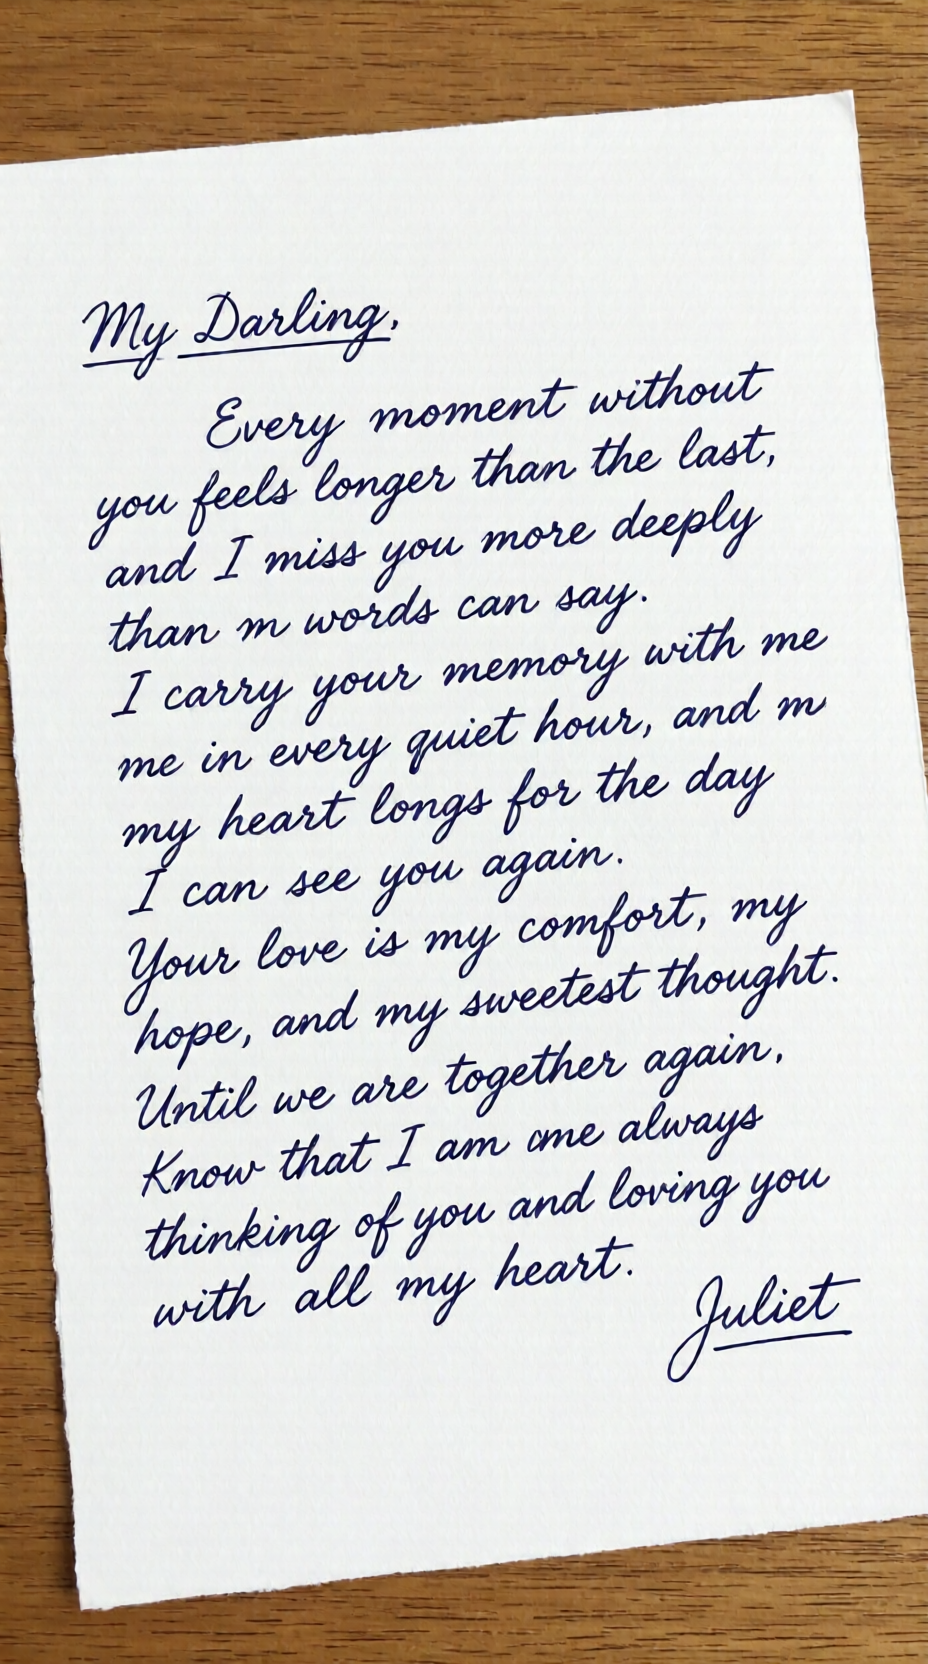 My Darling,
Every moment without
you feels longer than the last,
and I miss you more deeply
than m words can say.
I carry your memory with me
me in every quiet hour, and m
my heart longs for the day
I can see you again.
Your love is my comfort, my
hope, and my sweetest thought.
Until we are together again,
Know that I am me always
thinking of you and loving you
with all my heart.
Juliet